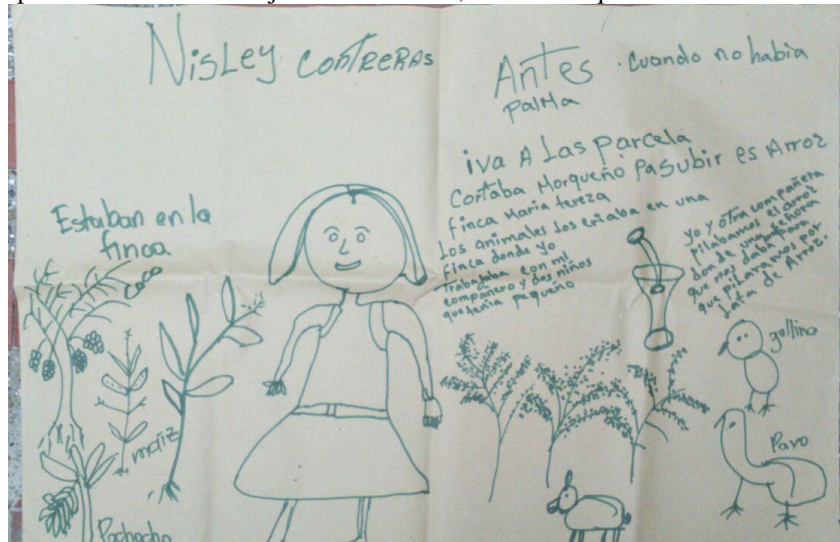 Nisley contreras
Antes . cuando no habia
palma
iva A Las parcela
Cortaba Morqueño pasubir es Arroz
finca Maria tereza
Los animales los criaba en una
finca donde yo
Trabajaba con mi
compañero y dos niños
que tenia pequeño
yo y otra compañera
pilabamos el arroz
don de una señora
que nos daba para
que pilaramos por
lata de Arroz.
Estaban en la
finca
coco
maiz
Pochocho
gallina
Pavo